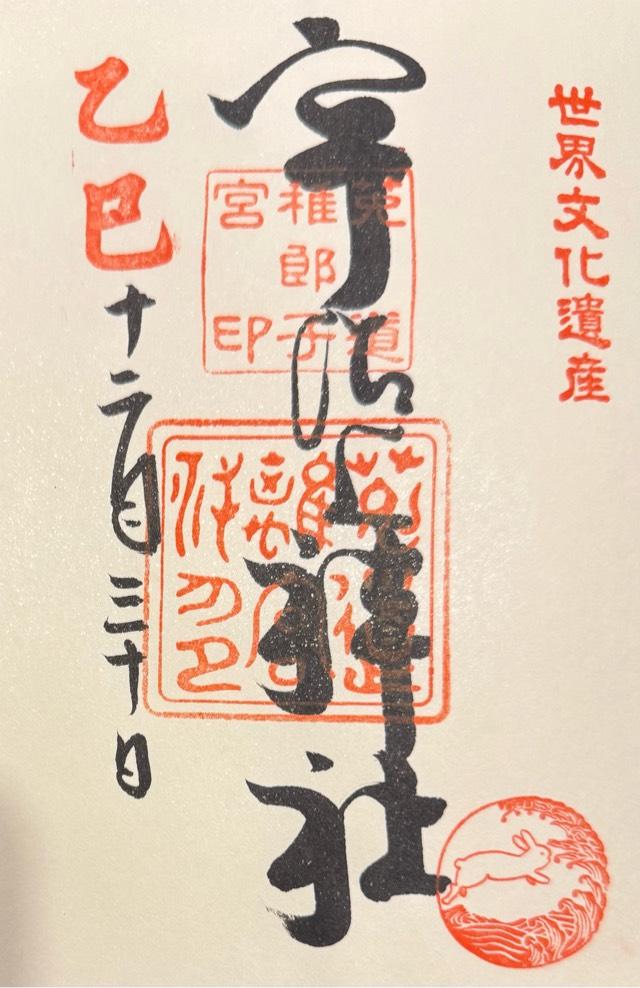 世界文化遺産
宇治上神社
菟道
稚郎子
宮印
乙巳
十二月三十日